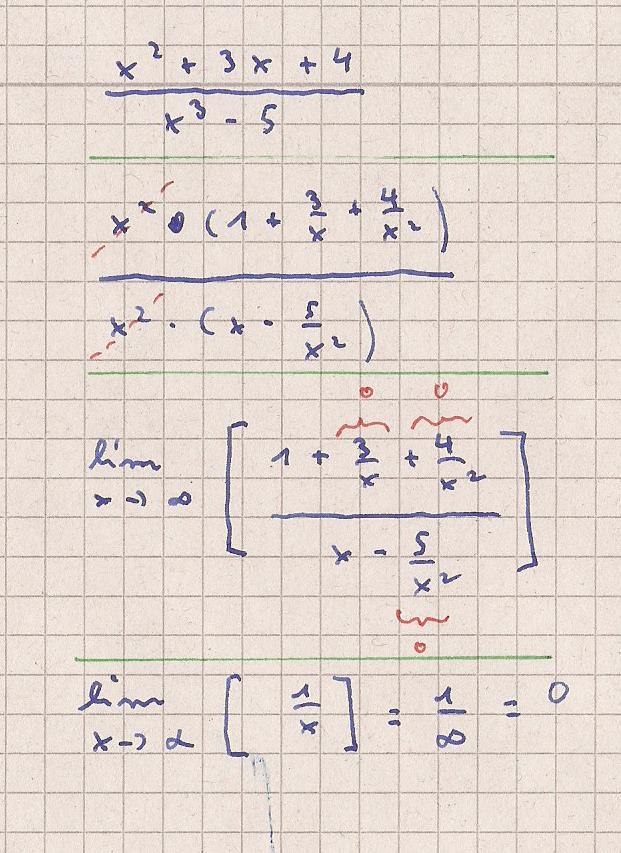 x² + 3x + 4
x³ - 5
x² • (1 + 3/x + 4/x²)
x² · (x - 5/x²)
0 0
lim x→∞ [ 1 + 3/x + 4/x²
x - 5/x² ]
0
lim x→∞ [ 1/x ] = 1/∞ = 0